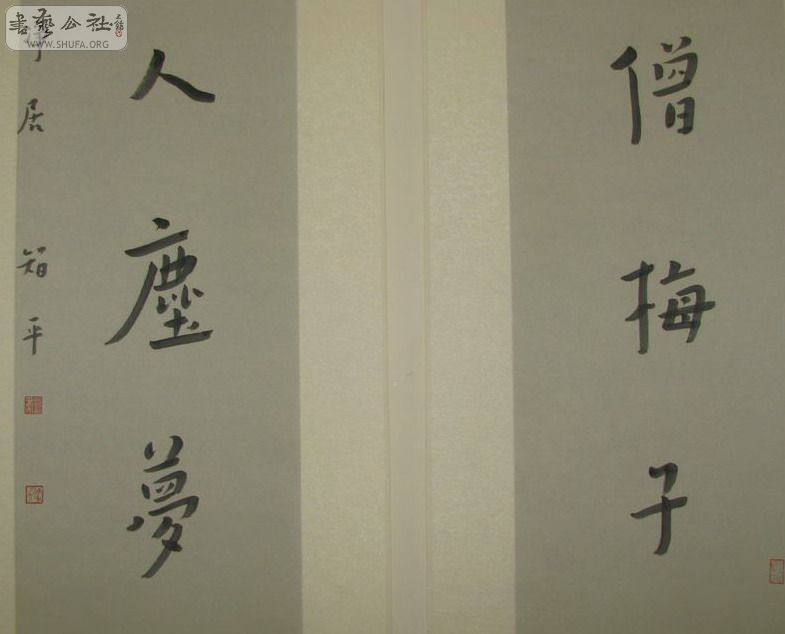 書藝公社
WWW.SHUFA.ORG
僧梅子
人塵夢
居 智平